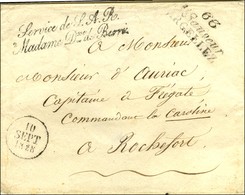 Service de S.A.R.
Madame Dsse de Berri.
29
BORDEAUX
A Monsieur
Monsieur d'Auriac
Capitaine de Frégate
Commandant la Caroline
à Rochefort
10
SEPT
1828